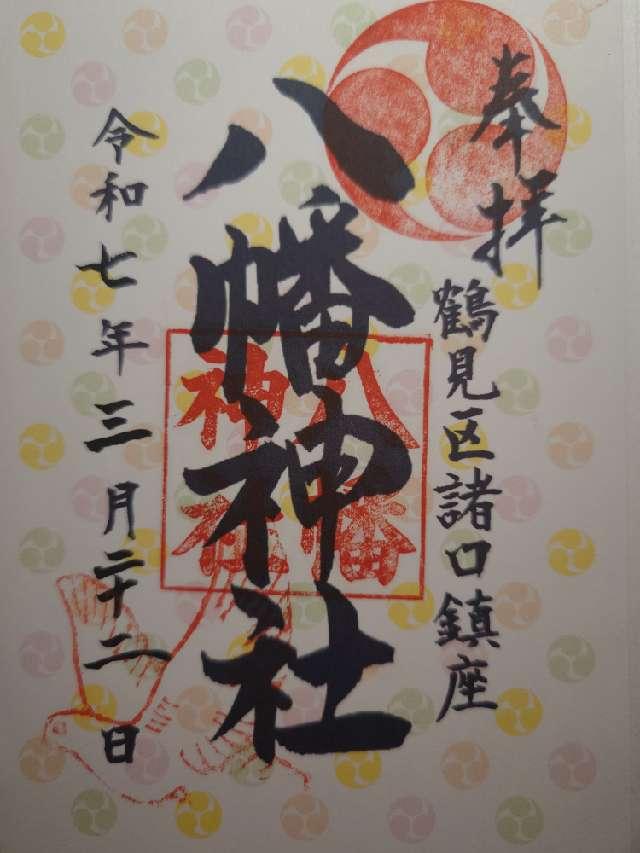 奉拝
鶴見区諸口鎮座
八幡神社
八幡
神社
令和七年三月二十二日